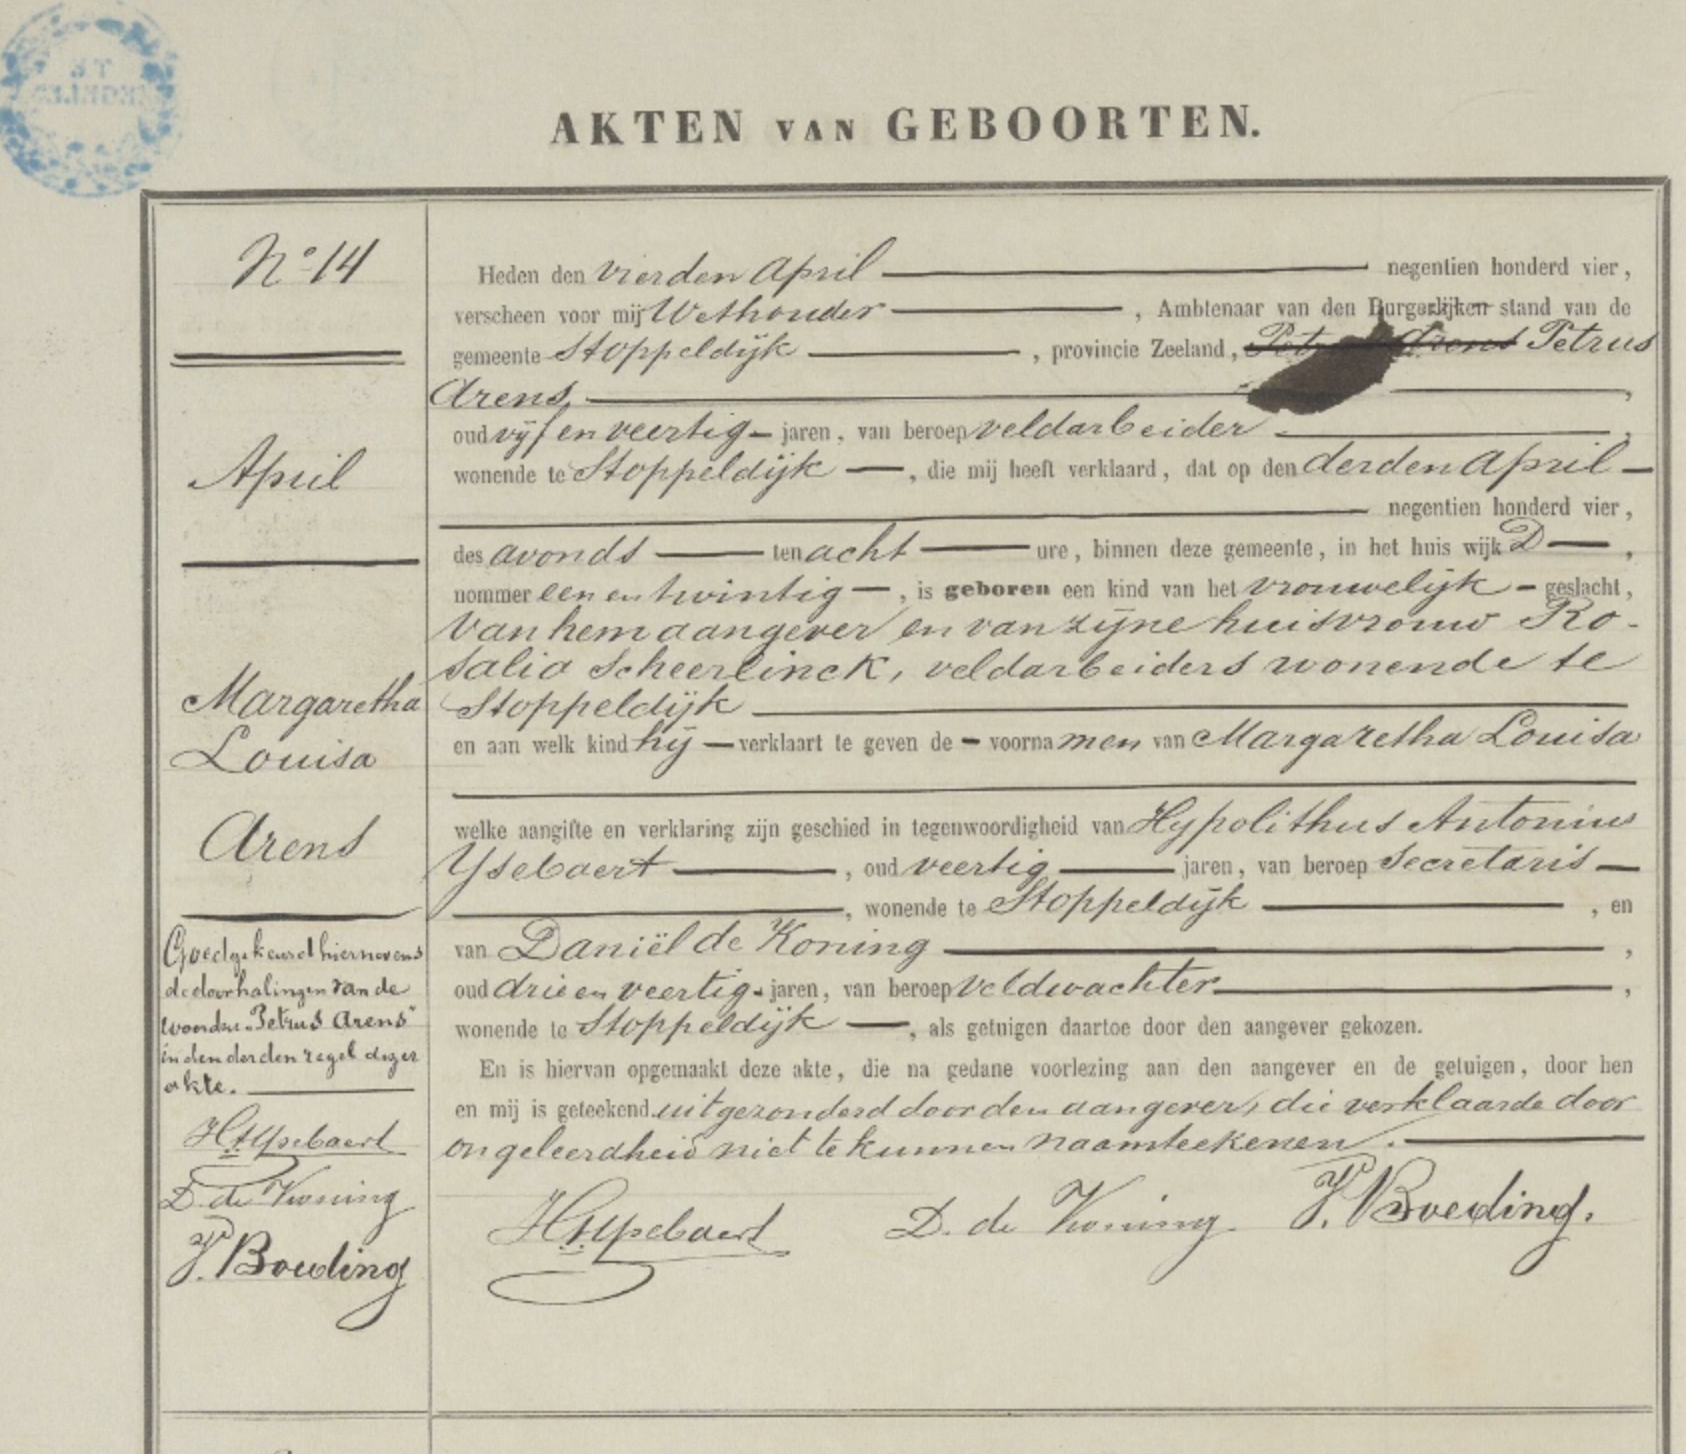 AKTEN VAN GEBOORTEN.
No 14
April
Margaretha
Louisa
Arens
Goedgekeurd hiernevens
de doorhalingen van de
woorden "Petrus Arens"
in den derden regel dezer
akte.
D. de Koning
Heden den vierden April negentien honderd vier,
verscheen voor mij Wethouder, Ambtenaar van den Burgerlijken stand van de
gemeente Stoppeldijk, provincie Zeeland, Petrus Arens Petrus
Arens,
oud vijf en veertig jaren, van beroep veldarbeider,
wonende te Stoppeldijk, die mij heeft verklaard, dat op den derden April
negentien honderd vier,
des avonds ten acht ure, binnen deze gemeente, in het huis wijk D,
nommer een en twintig, is geboren een kind van het vrouwelijk geslacht,
van hem aangever en van zijne huisvrouw Ro-
salia Scheerlinck, veldarbeiders wonende te
Stoppeldijk
en aan welk kind hij verklaart te geven de voornamen van Margaretha Louisa
welke aangifte en verklaring zijn geschied in tegenwoordigheid van Hypolithus Antonius
Ysebaert, oud veertig jaren, van beroep secretaris
, wonende te Stoppeldijk, en
van Daniël de Koning,
oud drie en veertig jaren, van beroep veldwachter,
wonende te Stoppeldijk, als getuigen daartoe door den aangever gekozen.
En is hiervan opgemaakt deze akte, die na gedane voorlezing aan den aangever en de getuigen, door hen
en mij is geteekend uitgezonderd door den aangever, die verklaarde door
ongeleerdheid niet te kunnen naamteekenen.
D. de Koning